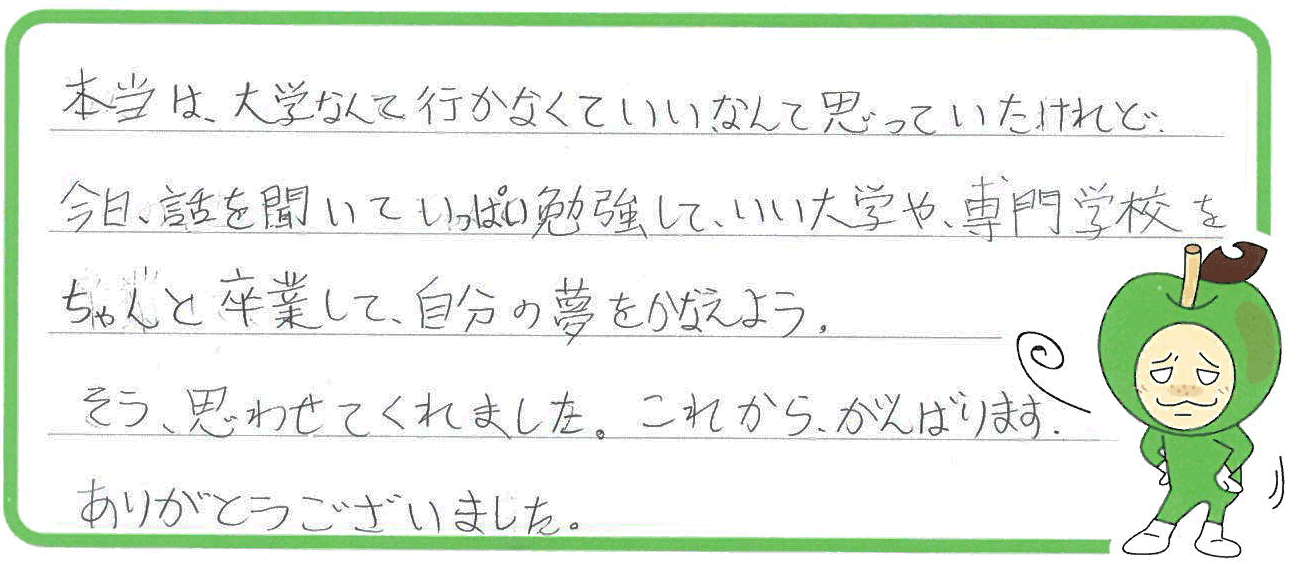 本当は、大学なんて行かなくていいなんて思っていたけれど、
今日、話を聞いていっぱい勉強して、いい大学や、専門学校を
ちゃんと卒業して、自分の夢をかなえよう。
そう、思わせてくれました。これから、がんばります。
ありがとうございました。